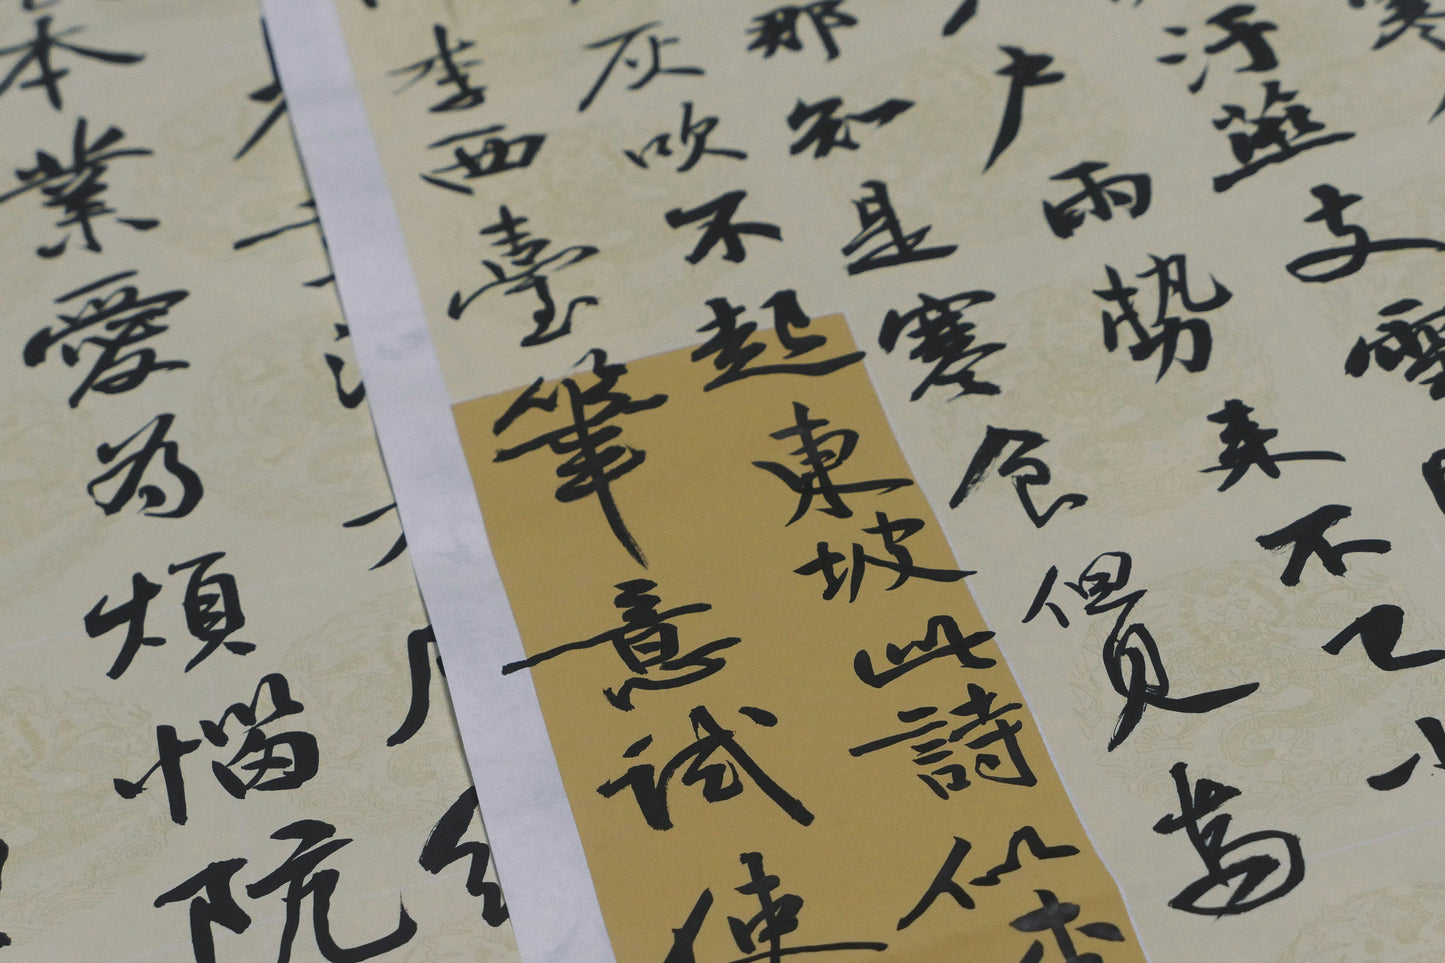 寒
汙燕支雪
戶雨勢來不已小
那知是寒食但見烏
灰吹不起東坡此詩似李
李西臺筆意試使
本業愛為煩惱阮